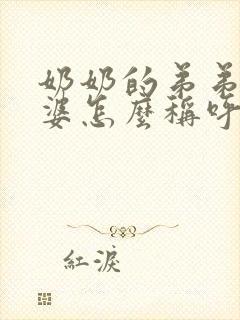 奶奶的弟弟
婆怎麼稱呼
紅淚